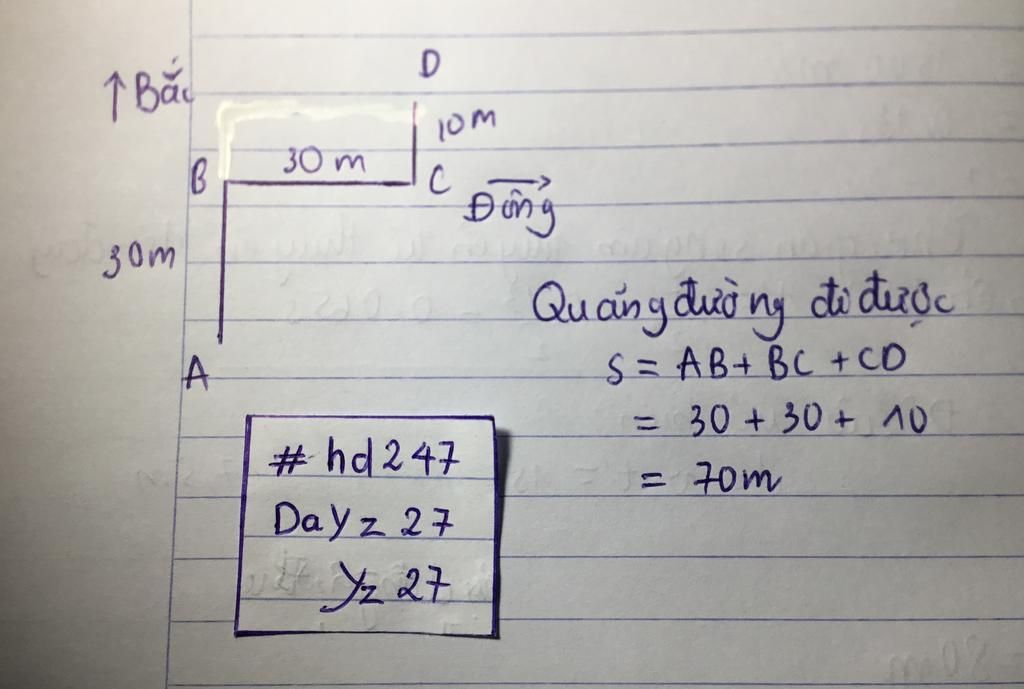 D
↑ Bắc
10m
30 m
B
C
Đông
30m
Quãng đường đi được
A
S = AB + BC + CD
= 30 + 30 + 10
= 70m
# hd247
Dayz 27
Yz 27